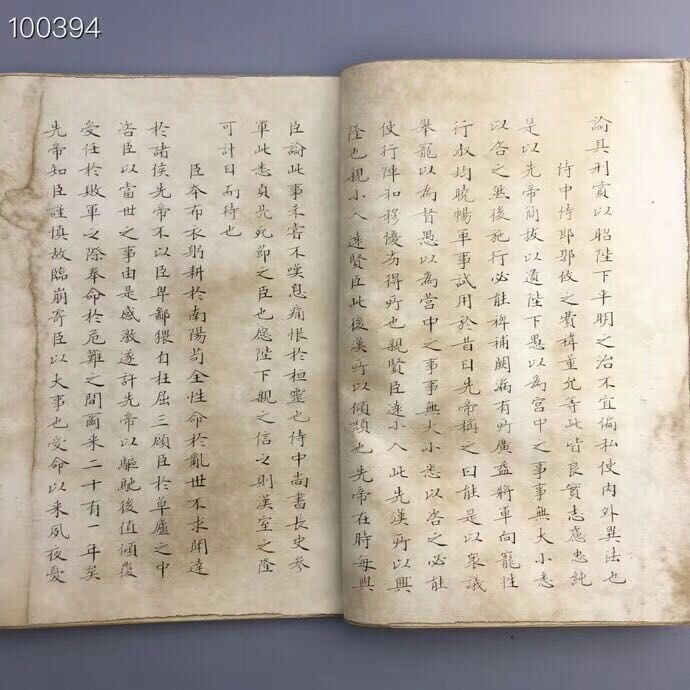 100394
論其刑賞以昭陛下平明之治不宜偏私使内外異法也
侍中侍郎郭攸之費禕董允等此皆良實志慮忠純
是以先帝簡拔以遺陛下愚以為宮中之事事無大小悉
以咨之然後施行必能裨補闕漏有所廣益將軍向寵性
行淑均曉暢軍事試用於昔日先帝稱之曰能是以衆議
舉寵以為督愚以為營中之事事無大小悉以咨之必能
使行陣和穆優劣得所也親賢臣遠小人此先漢所以興
隆也親小人遠賢臣此後漢所以傾頹也先帝在時每與
臣論此事未嘗不嘆息痛恨於桓靈也侍中尚書長史參
軍此悉貞亮死節之臣也愿陛下親之信之則漢室之隆
可計日而待也
臣本布衣躬耕於南陽苟全性命於亂世不求聞達
於諸侯先帝不以臣卑鄙猥自枉屈三顧臣於草廬之中
咨臣以當世之事由是感激遂許先帝以驅馳後值傾覆
受任於敗軍之際奉命於危難之間爾来二十有一年矣
先帝知臣謹慎故臨崩寄臣以大事也受命以来夙夜憂